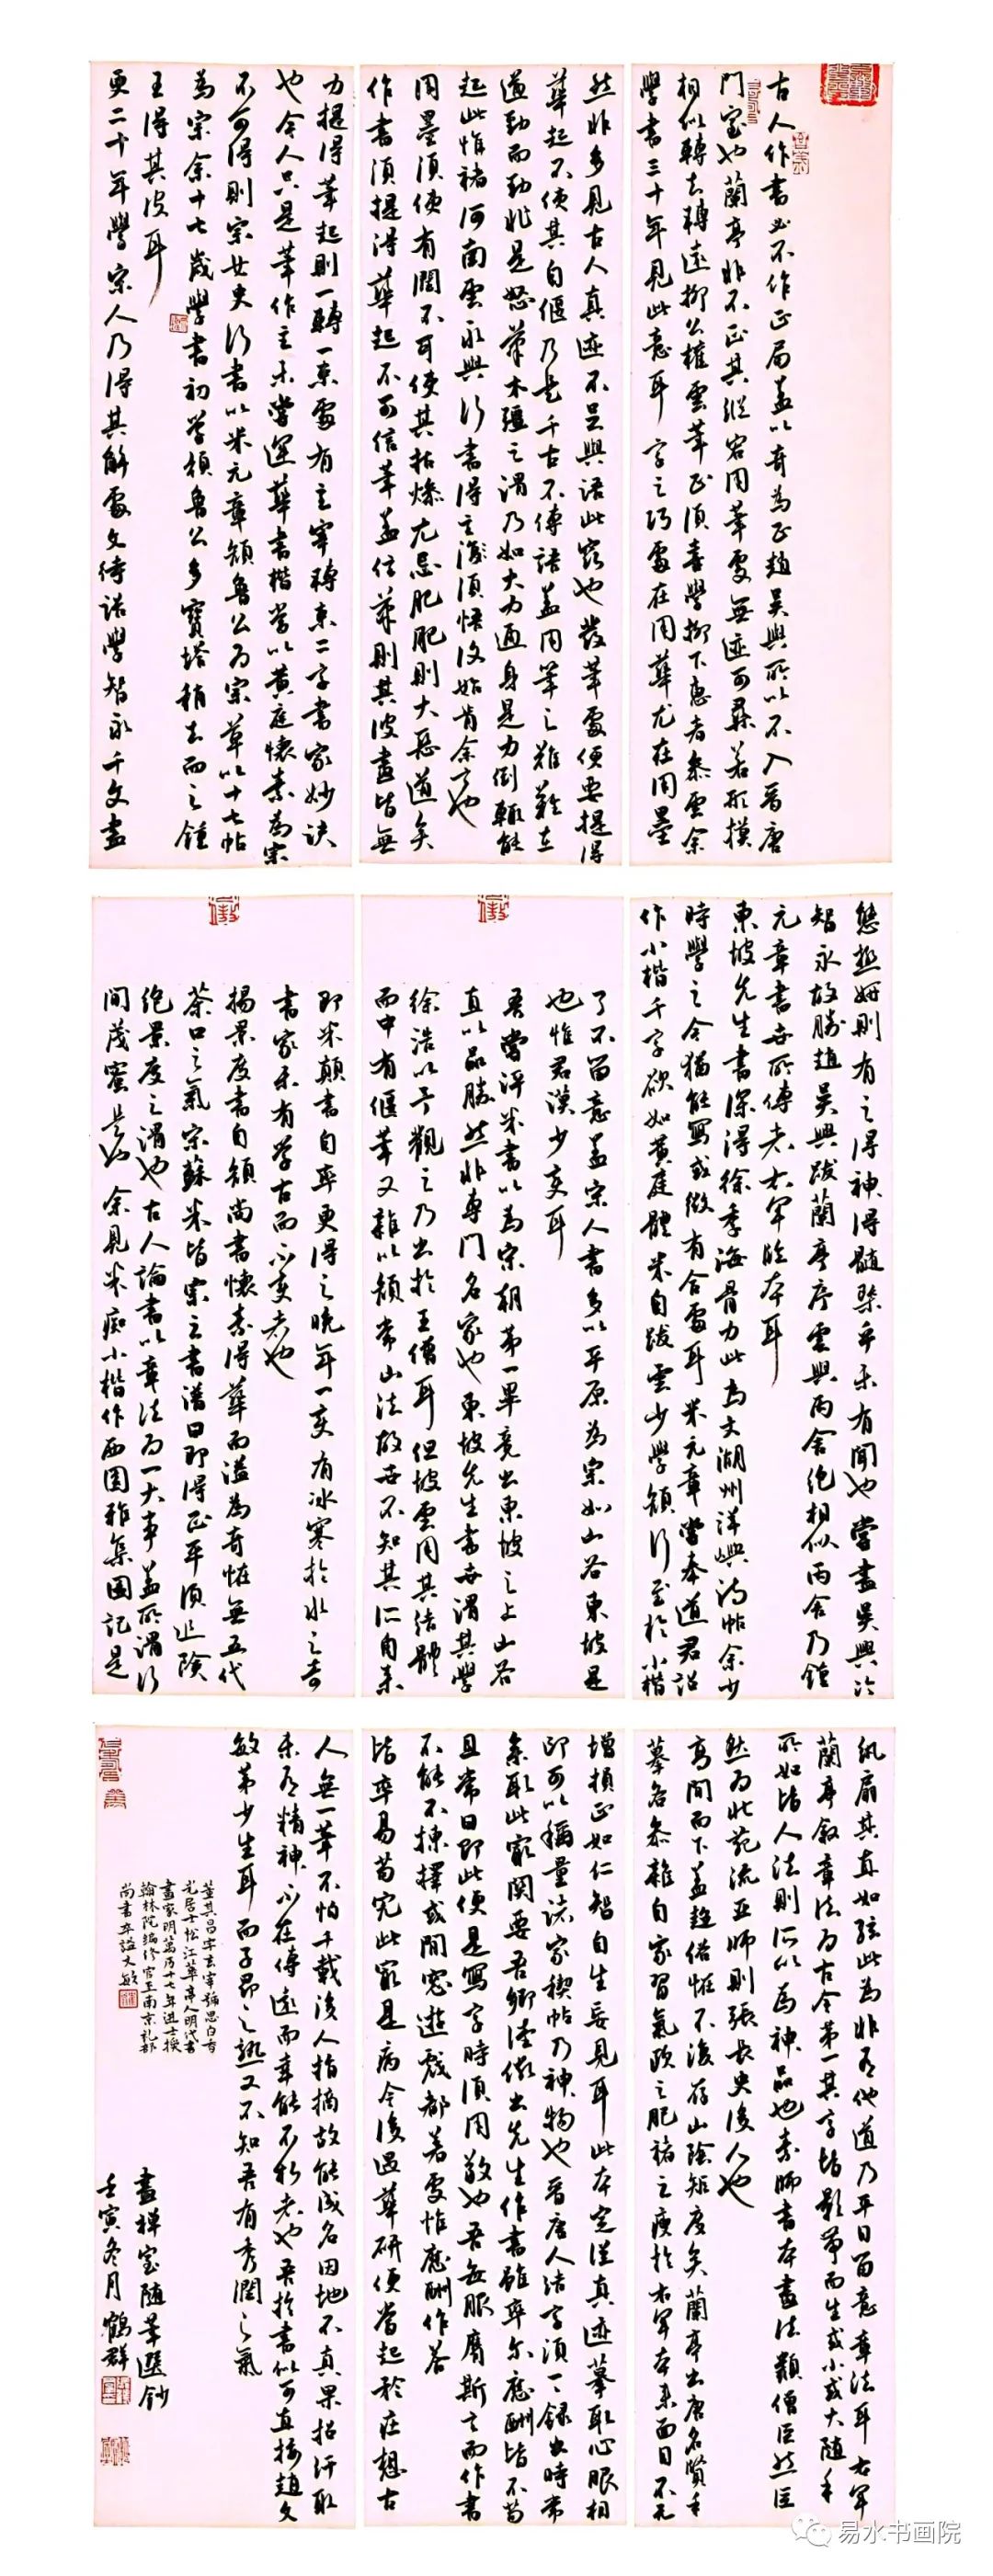 古人作書必不作正局蓋以奇為正趙吳興所以不入晉唐
門室也蘭亭非不正其縱宕用筆處無迹可尋若形模
相似轉去轉遠柳公權雲筆正須善學柳下惠者參雲余
學書三十年見此意耳字之巧處在用筆尤在用墨
然非多見古人真迹不足與語此竅也發筆處便要提得
筆起不使其自偃乃是千古不傳語蓋用筆之難難在
遒勁而勁非是怒筆木強之謂乃如大力通身是力倒輒能
起此惟褚河南雲永興行書得之須悟後始肯余言也
用墨須使有潤不可使其枯燥尤忌肥肥則大惡道矣
作書須提得筆起不可信筆蓋信筆則其波畫皆無
力提得筆起則一轉一束處有主宰轉束二字書家妙訣
也今人只是筆作主未嘗運筆書楷當以黃庭懷素為宗
不可得則宗女史行書以米元章顏魯公為宗草以十七帖
為宗余十七歲學書初學顏魯公多寶塔稍去而之鍾
王得其皮耳
更二十年學宋人乃得其解處文待詔學智永千文盡
態極妍則有之得神得髓槩乎未有聞也嘗盡吳興
智永故勝趙吳興跋蘭亭序雲與丙舍絕相似丙舍乃鍾
元章書世所傳者右軍臨本耳
東坡先生書深得徐季海骨力此為文湖州洋嶼詩帖余少
時學之今猶能寫或微有合處耳米元章嘗奉道君詔
作小楷千字欲如黃庭體米自跋雲少學顏行至於小楷
了不留意蓋宋人書多以平原為宗如山谷東坡是
也惟君漢少變耳
吾嘗評米書以為宋朝第一畢竟出東坡之上山谷
直以品勝然非專門名家也東坡先生書世謂其學
徐浩以予觀之乃出於王僧耳但坡雲用其結體
而中有偃筆又雜以顏常山法故世不知其所自來
即米顛書自率更得之晚年一變有冰寒於水之奇
書家未有學古而不變者也
楊景度書自顏尚書懷素得筆而溢為奇怪無五代
茶口之氣宋蘇米皆宗之書譜曰既得正平須追險
絕景度之謂也古人論書以章法為一大事蓋所謂行
間茂蜜是也余見米癡小楷作西園雅集圖記是
紈扇其直如弦此為非有他道乃平日留意章法耳右軍
蘭亭敘章法為古今第一其字皆影帶而生或小或大隨手
所如皆入法則所以為神品也素師書本畫法類僧巨然巨
然為北苑流亞師則張長史後人也
高間而下蓋趨俗怪不復存山陰矩度矣蘭亭出唐名賢手
摹各參雜自家習氣歐之肥褚之瘦於右軍本來面目不無
增損正如仁智自生妄見耳此本定從真迹摹取心眼相
印可以稱量諸家禊帖乃神物也晉唐人結字須一一錄出時常
參取此最關要吾鄉陸儼山先生作書雖率爾應酬皆不苟
且常曰即此便是寫字時須用敬也吾每服膺斯言而作書
不能不揀擇或閒窻遊戲都著處惟應酬作答
皆率易苟完此最是病今後遇筆研便當起矜莊想古
人無一筆不怕千載後人指摘故能成名因地不真果招紆取
未有精神不在傳遠而幸能不朽者也吾於書似可直接趙文
敏第少生耳而子昂之熟又不如吾有秀潤之氣
董其昌字玄宰號思白香
光居士松江華亭人明代書
畫家明萬曆十七年進士授
翰林院編修官至南京禮部
尚書卒謚文敏
畫禪室隨筆選鈔
壬寅冬月鶴群
易水书画院